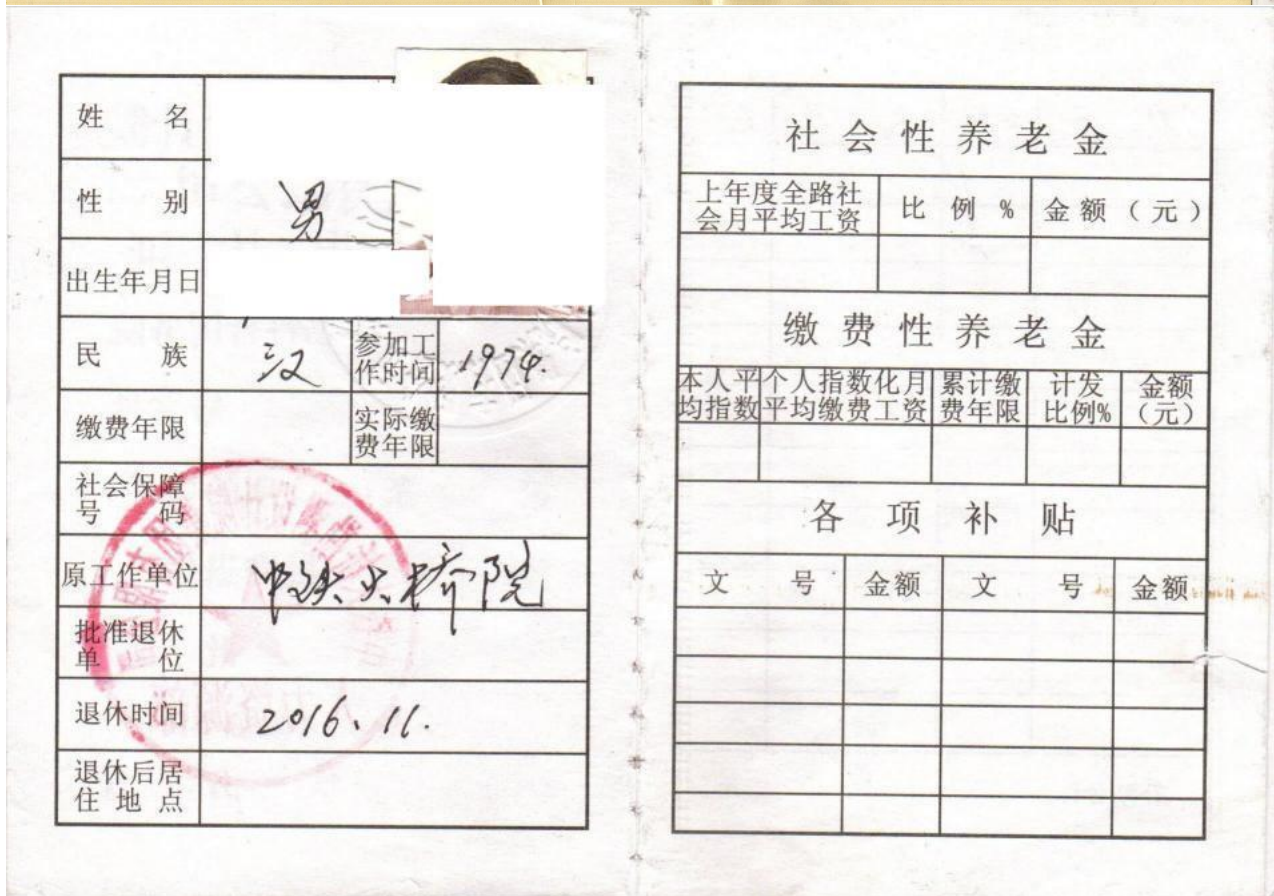 姓 名
性 别 男
出生年月日
民 族 汉 参加工作时间 1974.
缴费年限 实际缴费年限
社会保障号码
原工作单位 中铁大桥院
批准退休单位
退休时间 2016、11.
退休后居住地点
社会性养老金
上年度全路社会月平均工资 比例% 金额(元)
缴费性养老金
本人平均指数 个人指数化月平均缴费工资 累计缴费年限 计发比例% 金额(元)
各项补贴
文 号 金额 文 号 金额